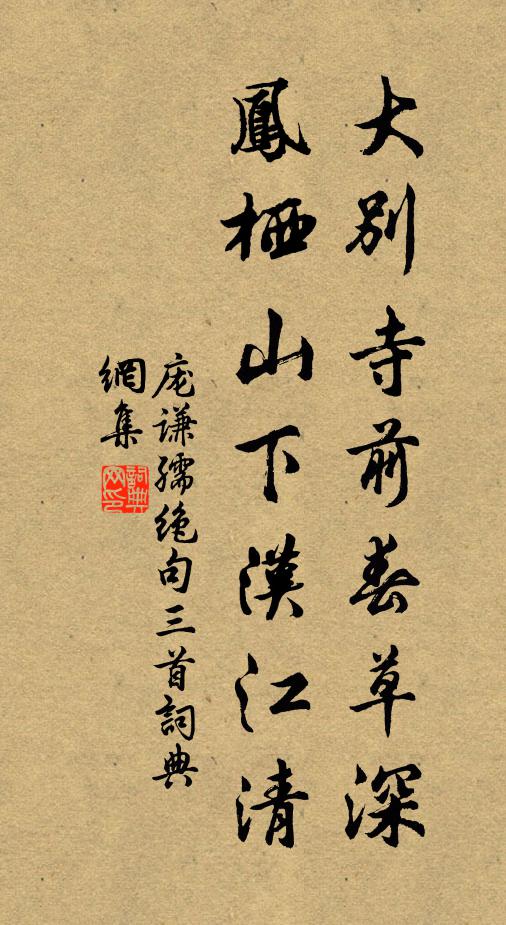 大別寺前春草深
鳳栖山下漢江清
庞谦孺绝句三首詞典
網集
詞典网印